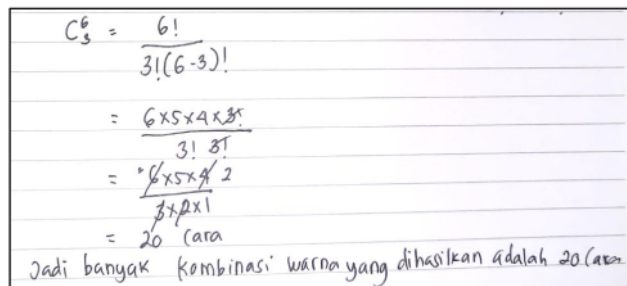 C⁶₃ = 6!
3!(6-3)!
= 6×5×4×3!
3! 3!
= ²6×5×4 2
3×2×1
= 20 Cara
Jadi banyak kombinasi warna yang dihasilkan adalah 20 Cara